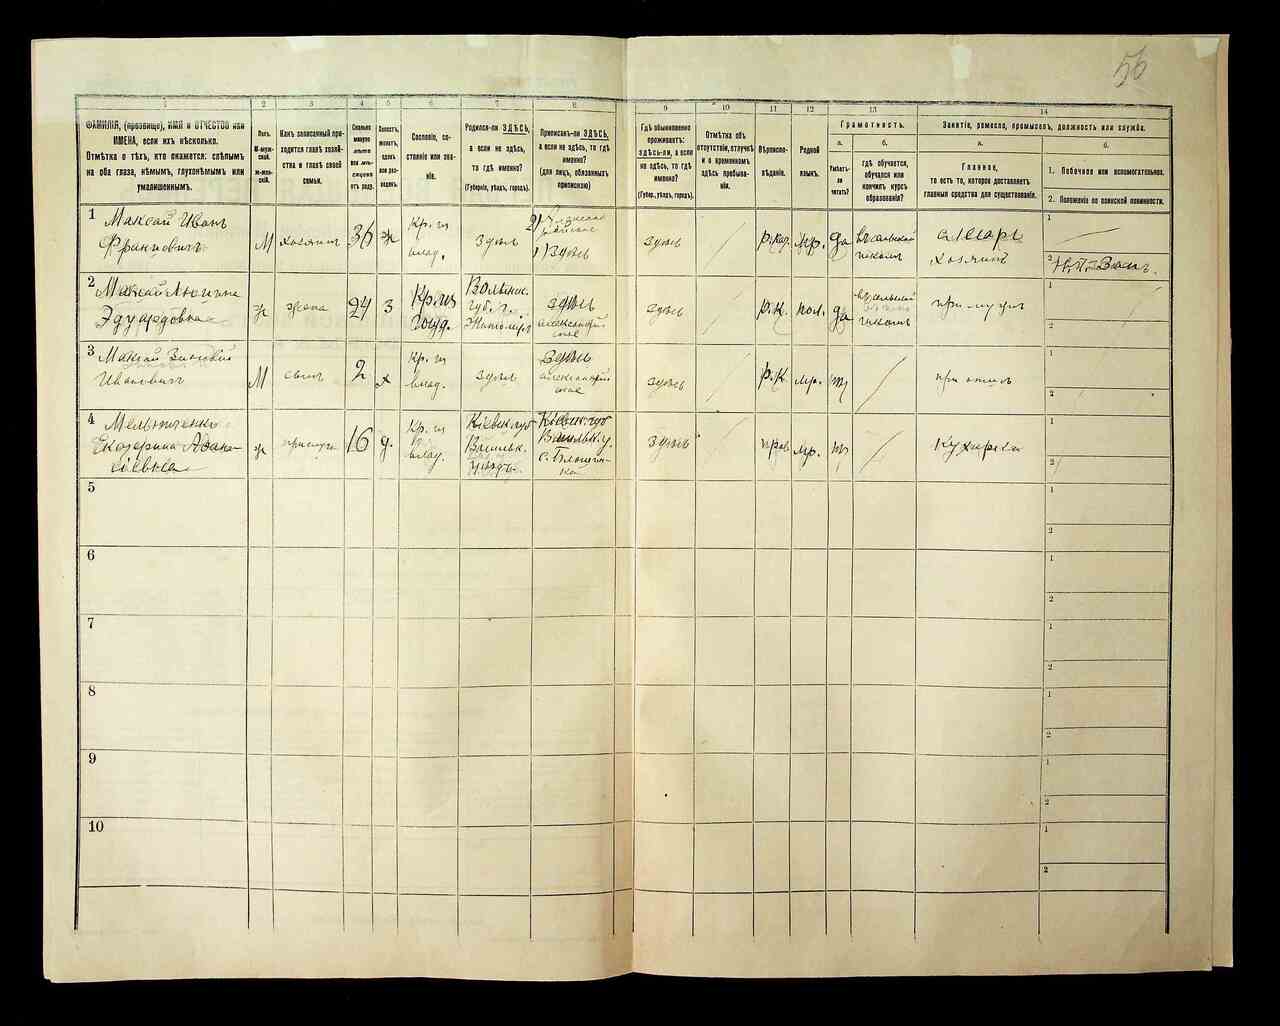 56
1 2 3 4 5 6 7 8 9 10 11 12 13 14
ФАМИЛІЯ, (прозвище), ИМЯ и ОТЧЕСТВО или
ИМЕНА, если ихъ нѣсколько.
Отмѣтка о тѣхъ, кто окажется: слѣпымъ
на оба глаза, нѣмымъ, глухонѣмымъ или
умалишеннымъ.
Полъ.
М-муж-
ской.
ж-жен-
скій.
Какъ записанный при-
ходится главѣ хозяй-
ства и главѣ своей
семьи.
Сколько
минуло
лѣтъ
или мѣ-
сяцевъ
отъ роду.
Холостъ,
женатъ,
вдовъ
или раз-
веденъ.
Сословіе, со-
стояніе или зва-
ніе.
Родился-ли ЗДѢСЬ,
а если не здѣсь,
то гдѣ именно?
(Губернія, уѣздъ, городъ).
Приписанъ-ли ЗДѢСЬ,
а если не здѣсь, то гдѣ
именно?
(для лицъ, обязанныхъ
припискою)
Гдѣ обыкновенно
проживаетъ:
здѣсь-ли, а если
не здѣсь, то гдѣ
именно?
(Губер., уѣздъ, городъ).
Отмѣтка объ
отсутствіи, отлучкѣ
и о временномъ
здѣсь пребыва-
ніи.
Вѣроиспо-
вѣданіе.
Родной
языкъ.
Грамотность.
а.
Умѣетъ-
ли
читать?
б.
гдѣ обучается,
обучался или
кончилъ курсъ
образованія?
Занятіе, ремесло, промыселъ, должность или служба.
а.
Главное,
то есть то, которое доставляетъ
главныя средства для существованія.
б.
1. Побочное или вспомогательное.
2. Положеніе по воинской повинности.
1 Максай Иванъ
Францовичъ
М хозяинъ 36 ж
Кр. из
влад.
здѣсь
1) Здѣсь
здѣсь / р. кат. мр. да
въ сельской
школѣ
слесарь
хозяинъ
1 —
2
2 Максай
Эдуардовна
ж жена 24 з
Кр. из
госуд.
Волынск.
губ. г.
Житомиръ
здѣсь
здѣсь / р. к. пол. да
въ сельской
школѣ
при мужѣ
1
2
3 Максай
Ивановичъ
М сынъ 2 х
Кр. из
влад.
здѣсь
Здѣсь
здѣсь / р. к. мр. /
при отцѣ
1
2
4 Мельниченко
Екатерина Афана-
сіевна
ж прислуга 16 д.
Кр. из
влад.
Кіевск. губ
Васильк.
уѣздъ.
Кіевск. губ
Васильк. у.
здѣсь / прав мр. /
Кухарка
1
2
5
1
2
6
1
2
7
1
2
8
1
2
9
1
2
10
1
2